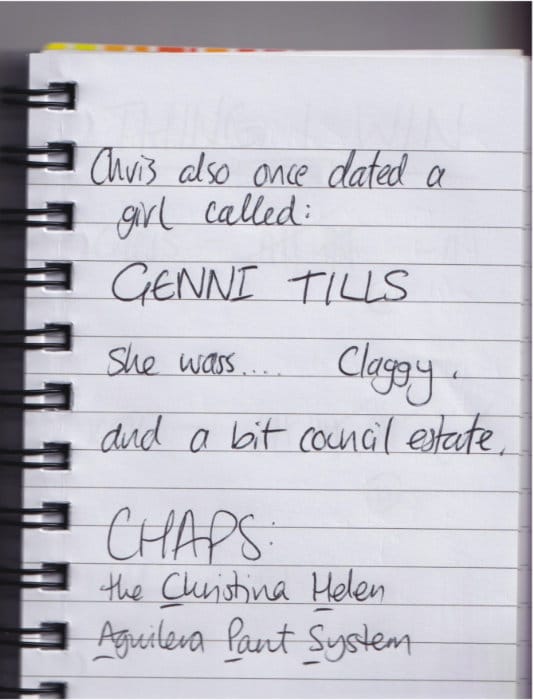 Chris also once dated a
girl called:
GENNI TILLS
she wass.... Claggy.
and a bit council estate.
CHAPS:
the Christina Helen
Aguilera Pant System